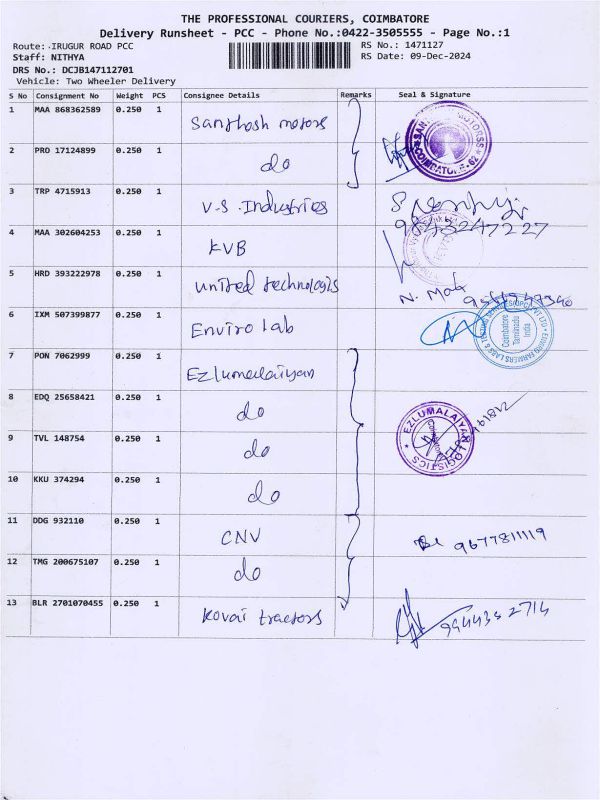 THE PROFESSIONAL COURIERS, COIMBATORE
Delivery Runsheet - PCC - Phone No.:0422-3505555 - Page No.:1
Route: IRUGUR ROAD PCC
Staff: NITHYA
DRS No.: DCJB147112701
Vehicle: Two Wheeler Delivery
RS No.: 1471127
RS Date: 09-Dec-2024
S No Consignment No Weight PCS Consignee Details Remarks Seal & Signature
1 MAA 868362589 0.250 1 Santhosh motors
2 PRO 17124899 0.250 1 do
COIMBATORE-62
3 TRP 4715913 0.250 1 V.S. Industries
9843247227
4 MAA 302604253 0.250 1 KVB
5 HRD 393222978 0.250 1 united technologis
6 IXM 507399877 0.250 1 Enviro Lab
Coimbatore
Tamilnadu
India
7 PON 7062999 0.250 1 Ezlumalaiyan
8 EDQ 25658421 0.250 1 do
EZLUMALAIYAN LOGISTICS
9 TVL 148754 0.250 1 do
10 KKU 374294 0.250 1 do
11 DDG 932110 0.250 1 CNV 9677811119
12 TMG 200675107 0.250 1 do
13 BLR 2701070455 0.250 1 Kovai tractors